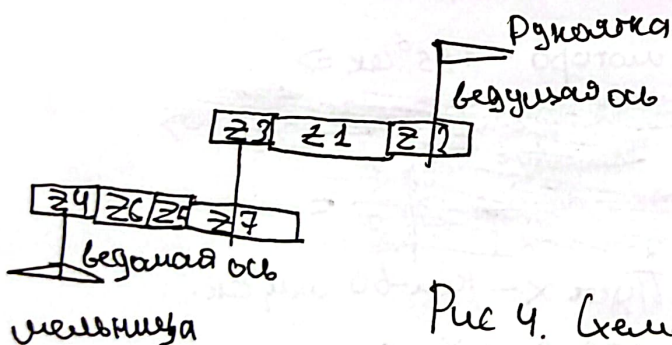 Рукоятка
ведущая ось
Z3 Z1 Z2
Z4 Z6 Z5 Z7
ведомая ось
мельница
Рис 4. Схем